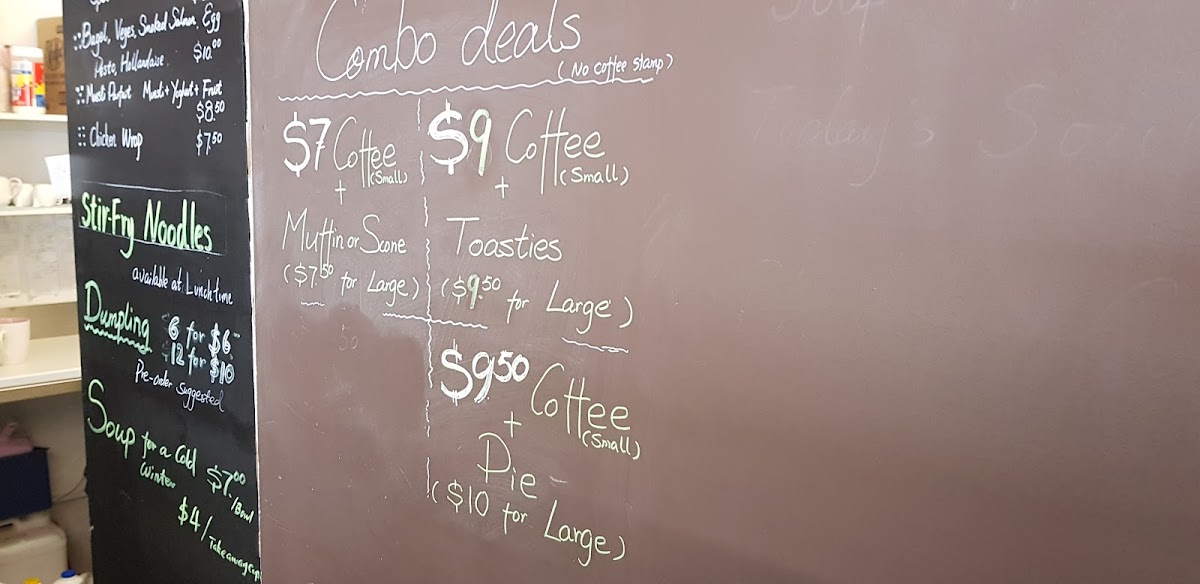 Bagel, Veges, Smoked Salmon, Egg
Pesto, Hollandaise. $10.00
Muesli Parfait Muesli + Yoghurt + Fruit
$8.50
Chicken Wrap $7.50
Stir-Fry Noodles
available at Lunch time
Dumpling 6 for $6
12 for $10
Pre-order suggested
Soup for a Cold $7.00
Winter /Bowl
$4/Takeaway cup
Combo deals
(No coffee stamp)
$7 Coffee
(Small)
+
Muffin or Scone
($7.50 for Large)
$9 Coffee
(Small)
+
Toasties
($9.50 for Large)
$9.50 Coffee
(Small)
+
Pie
($10 for Large)
Today's